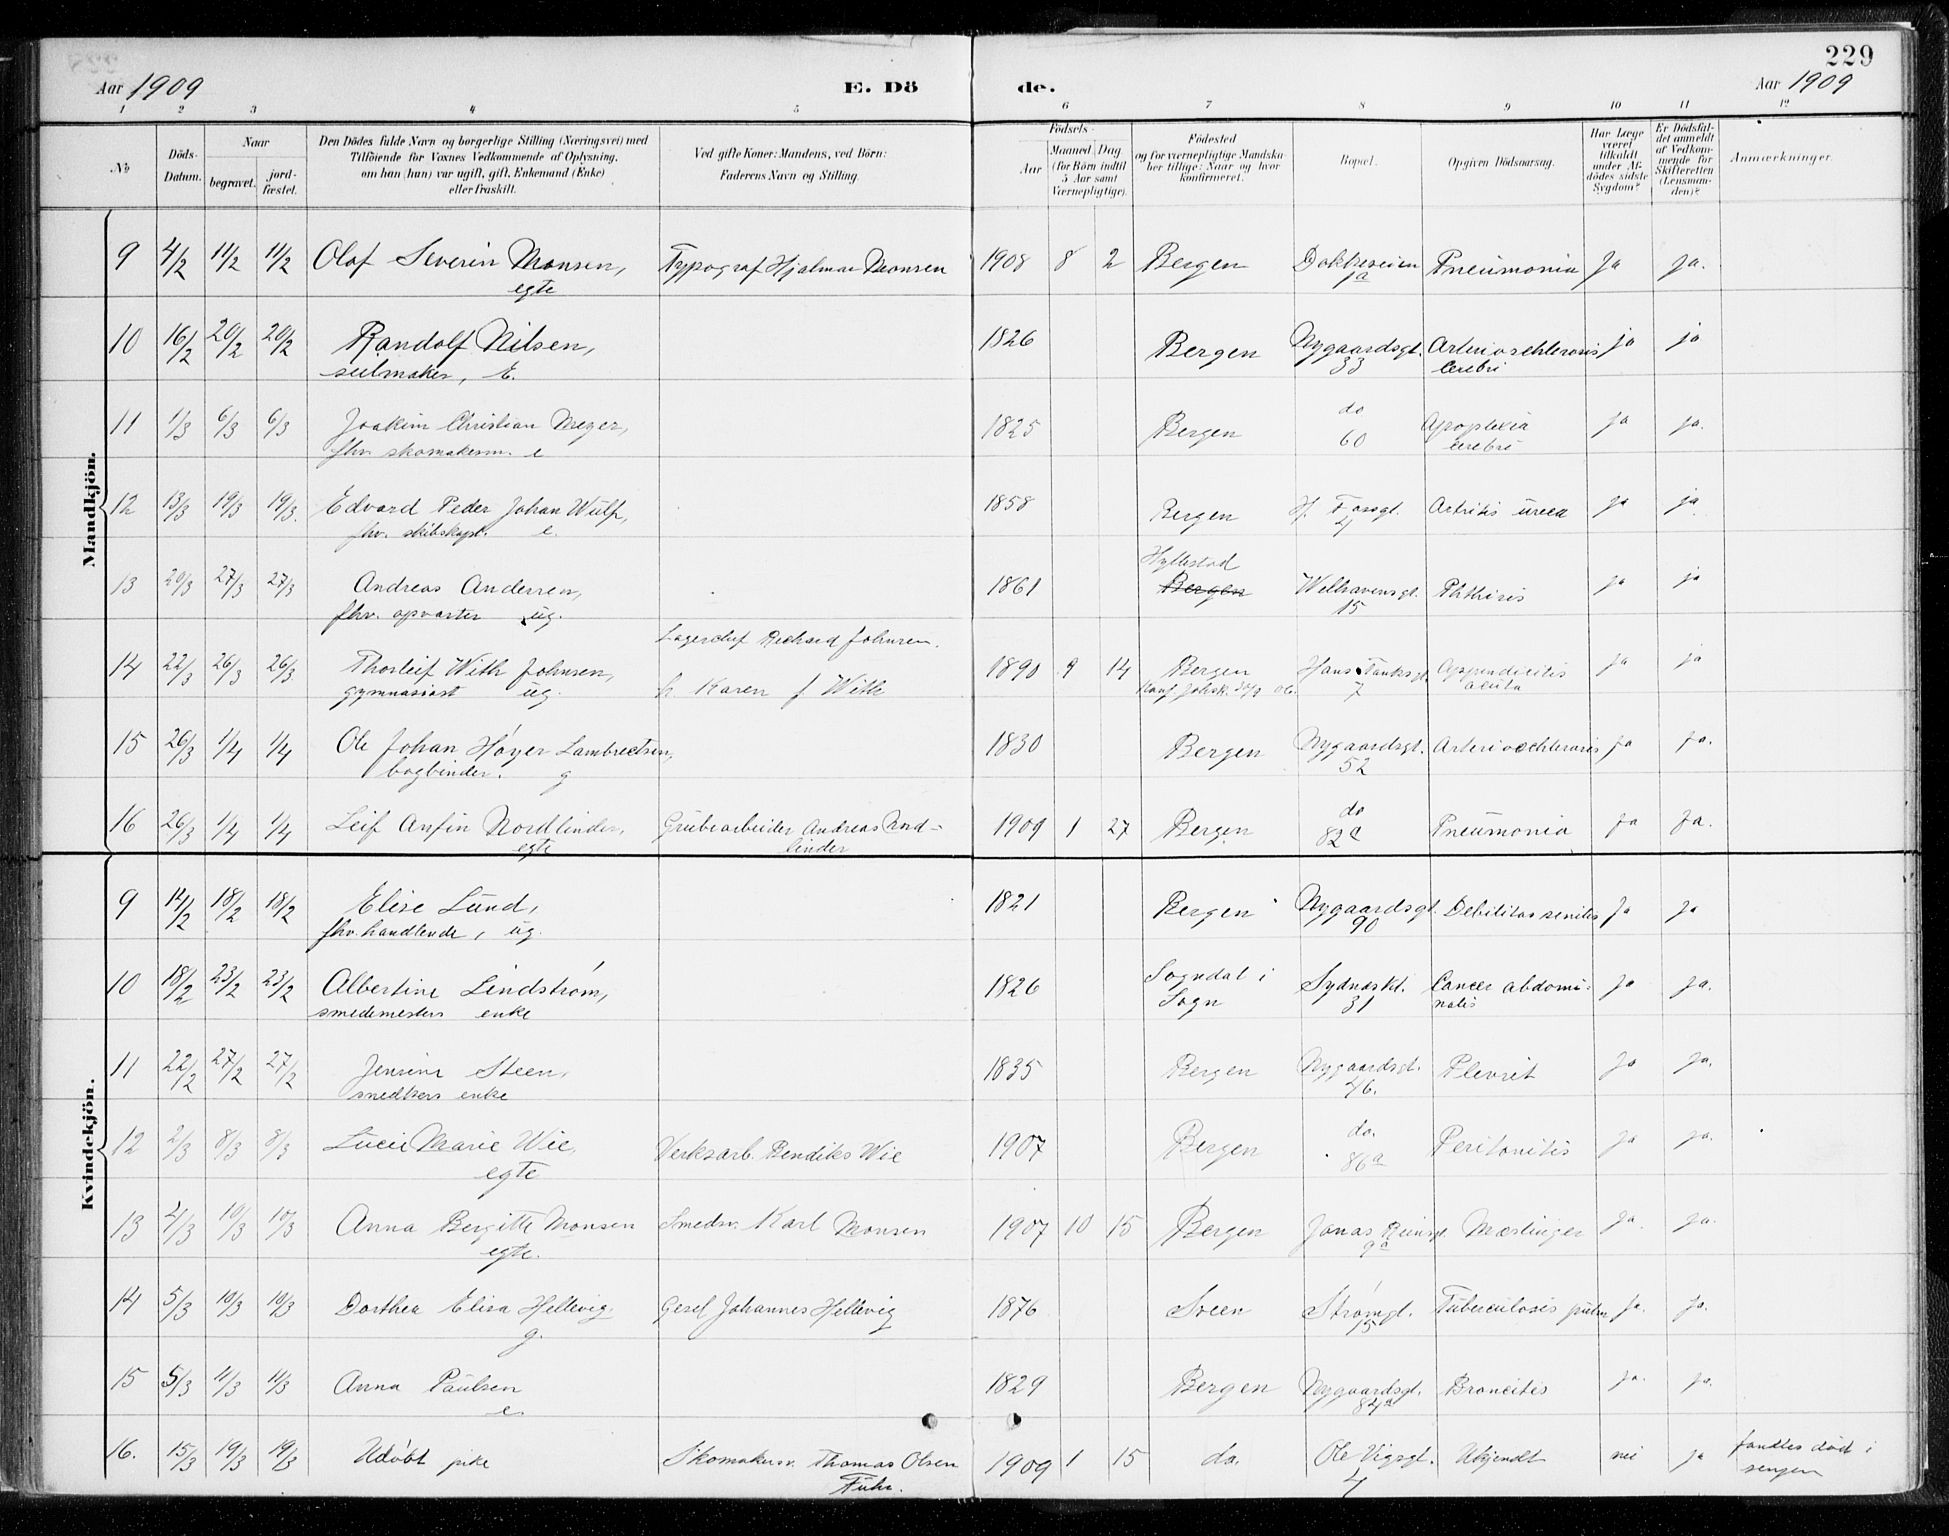 229
Aar 1909 E. Döde. Aar 1909
1 2 3 4 5 6 7 8 9 10 11 12
No
Döds-Datum.
Naar
begravet.
jordfæstet.
Den Dödes fulde Navn og borgerlige Stilling (Næringsvei) med
Tilföiende for Voxnes Vedkommende af Oplysning,
om han (hun) var ugift, gift, Enkemand (Enke)
eller fraskilt.
Ved gifte Koner: Mandens, ved Börn:
Faderens Navn og Stilling.
Födsels-
Aar
Maaned. Dag
(for Börn indtil
5 Aar samt
Værnepligtige).
Födested
og for værnepligtige Mandskaber tillige: Naar og hvor
konfirmeret.
Bopæl.
Opgiven Dödsaarsag.
Har Læge
været
tilkaldt
under Afdödes sidste
Sygdom?
Er Dödsfaldet anmeldt
af Vedkommende for
Skifteretten
(Lensmanden)?
Anmærkninger.
Mandkjön.
9 4/2 11/2 11/2 Olaf Severin Monsen, Typograf Hjalmar Monsen 1908 8 2 Bergen Dokkeveien Pneumonia Ja ja.
egte 1a
10 16/2 20/2 20/2 Randolf Nilsen, 1826 Bergen Nygaardsgt. Arterioschlerosis ja ja
seilmaker, E. 33 Cerebri
11 1/3 6/3 6/3 Joakim Christian Meyer, 1825 Bergen do Apoplexia ja ja.
fhv. skomakerm. e 60 cerebri
12 13/3 19/3 19/3. Edvard Peder Johan Wulf, 1858 Bergen H. Fossgt. Artritis urica ja ja
fhv. skibskapt. e. 4
13 20/3 27/3 27/3 Andreas Andersen, 1861 Hyllestad Bergen Welhavensgt. Phthisis ja ja
fhv. opvarter ug. 15
Lagerchef Richard Johnsen.
14 22/3 26/3 26/3 Thorleif With Johnsen, 1890 9 14 Bergen Hans Tanksgt. Appendicitis ja ja
gymnasiast ug. h. Karen f With Konf. Johsk. 7 acuta
15 26/3 1/4 1/4 Ole Johan Høyer Lambrectsen, 1830 Bergen Nygaardsgt. Arterioschlerosis ja ja.
bogbinder. g 52
16 26/3 1/4 1/4 Leif Anfin Nordlinder, Grubearbeider Andreas Nordlinder 1909 1 27 Bergen do Pneumonia ja ja.
egte 82c
Kvindekjön.
9 14/2 18/2 18/2 Elise Lund, 1821 Bergen Nygaardsgt. Debilitas senilis ja ja
fhv. handlende, ug. 90
10 18/2 23/2 23/2 Albertine Lindstrøm, 1826 Sogndal i Sogn Sydneskl. Cancer abdominalis ja ja.
smedemesters enke 31
11 22/2 27/2 27/2 Jensine Steen, 1835 Bergen Nygaardsgt. Plevrit ja ja.
snedkers enke 46.
12 2/3 8/3 8/3 Lucie Marie Wie, Verksarb. Bendiks Wie 1907 Bergen do. Peritonitis ja ja.
egte 86a
13 4/3 10/3 10/3 Anna Bergitte Monsen Smedsv. Karl Monsen 1907 10 15 Bergen Jonas Reinsgt. Mæslinger ja. ja.
egte. 9a
14 5/3 10/3 10/3 Dorthea Elisa Hellevig Gesel Johannes Hellevig 1876 Sveen Strømgt. Tuberculosis pulm ja. ja.
g. 15
15 5/3 11/3 11/3 Anna Paulsen 1829 Bergen Nygaardsgt. Broncitis ja. ja.
e 84a
16. 15/3 19/3 19/3 Udøbt pike Skomakersv. Thomas Olsen 1909 1 15 do. Ole Vigsgt. Ukjendt nei ja fandtes død i
Fuhr. 4 sengen